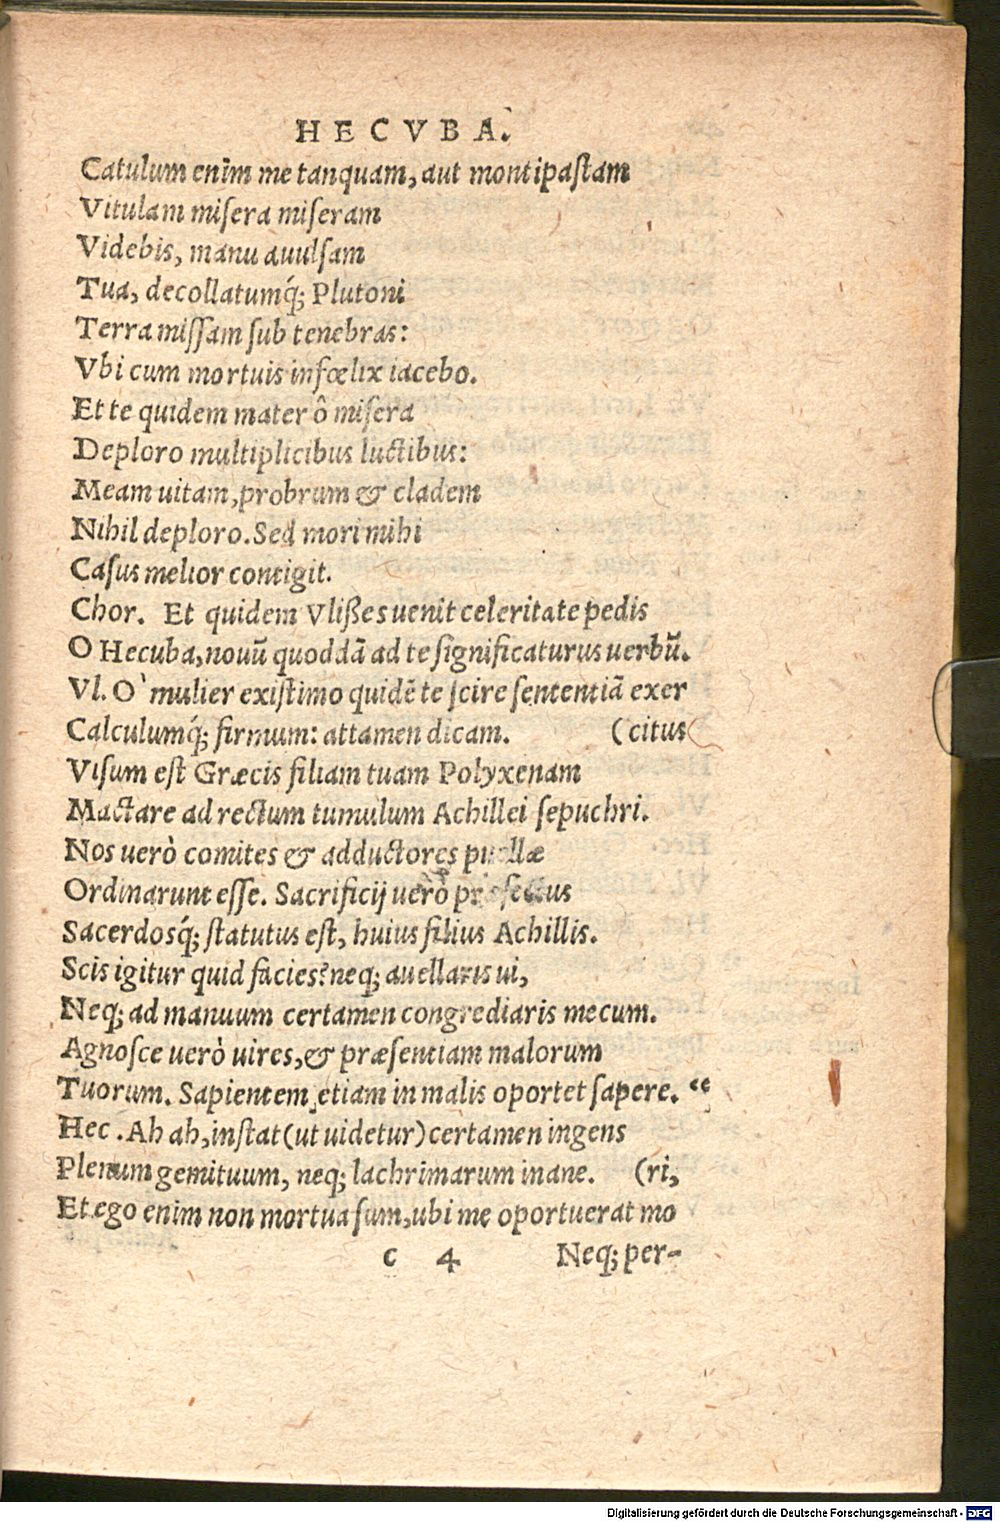 HECVBA.
Catulum enim me tanquam, aut montipastam
Vitulam misera miseram
Videbis, manu auulsam
Tua, decollatumq́; Plutoni
Terra missam sub tenebras:
Vbi cum mortuis infœlix iacebo.
Et te quidem mater ô misera
Deploro multiplicibus luctibus:
Meam uitam, probrum & cladem
Nihil deploro. Sed mori mihi
Casus melior contigit.
Chor. Et quidem Vlißes uenit celeritate pedis
O Hecuba, nouũ quoddã ad te significaturus uerbũ.
Vl. O` mulier existimo quidẽ te scire sententiã exer
Calculumq́; firmum: attamen dicam. (citus
Visum est Græcis filiam tuam Polyxenam
Mactare ad rectum tumulum Achillei sepuchri.
Nos uerò comites & adductores puellæ
Ordinarunt esse. Sacrificij uerò præfectus
Sacerdosq́; statutus est, huius filius Achillis.
Scis igitur quid facies? neq; auellaris ui,
Neq; ad manuum certamen congrediaris mecum.
Agnosce uerò uires, & præsentiam malorum
Tuorum. Sapientem etiam in malis oportet sapere. “
Hec. Ah ah, instat (ut uidetur) certamen ingens
Plenum gemituum, neq; lachrimarum inane. (ri,
Et ego enim non mortua sum, ubi me oportuerat mo
c 4 Neq; per-
Digitalisierung gefördert durch die Deutsche Forschungsgemeinschaft - DFG